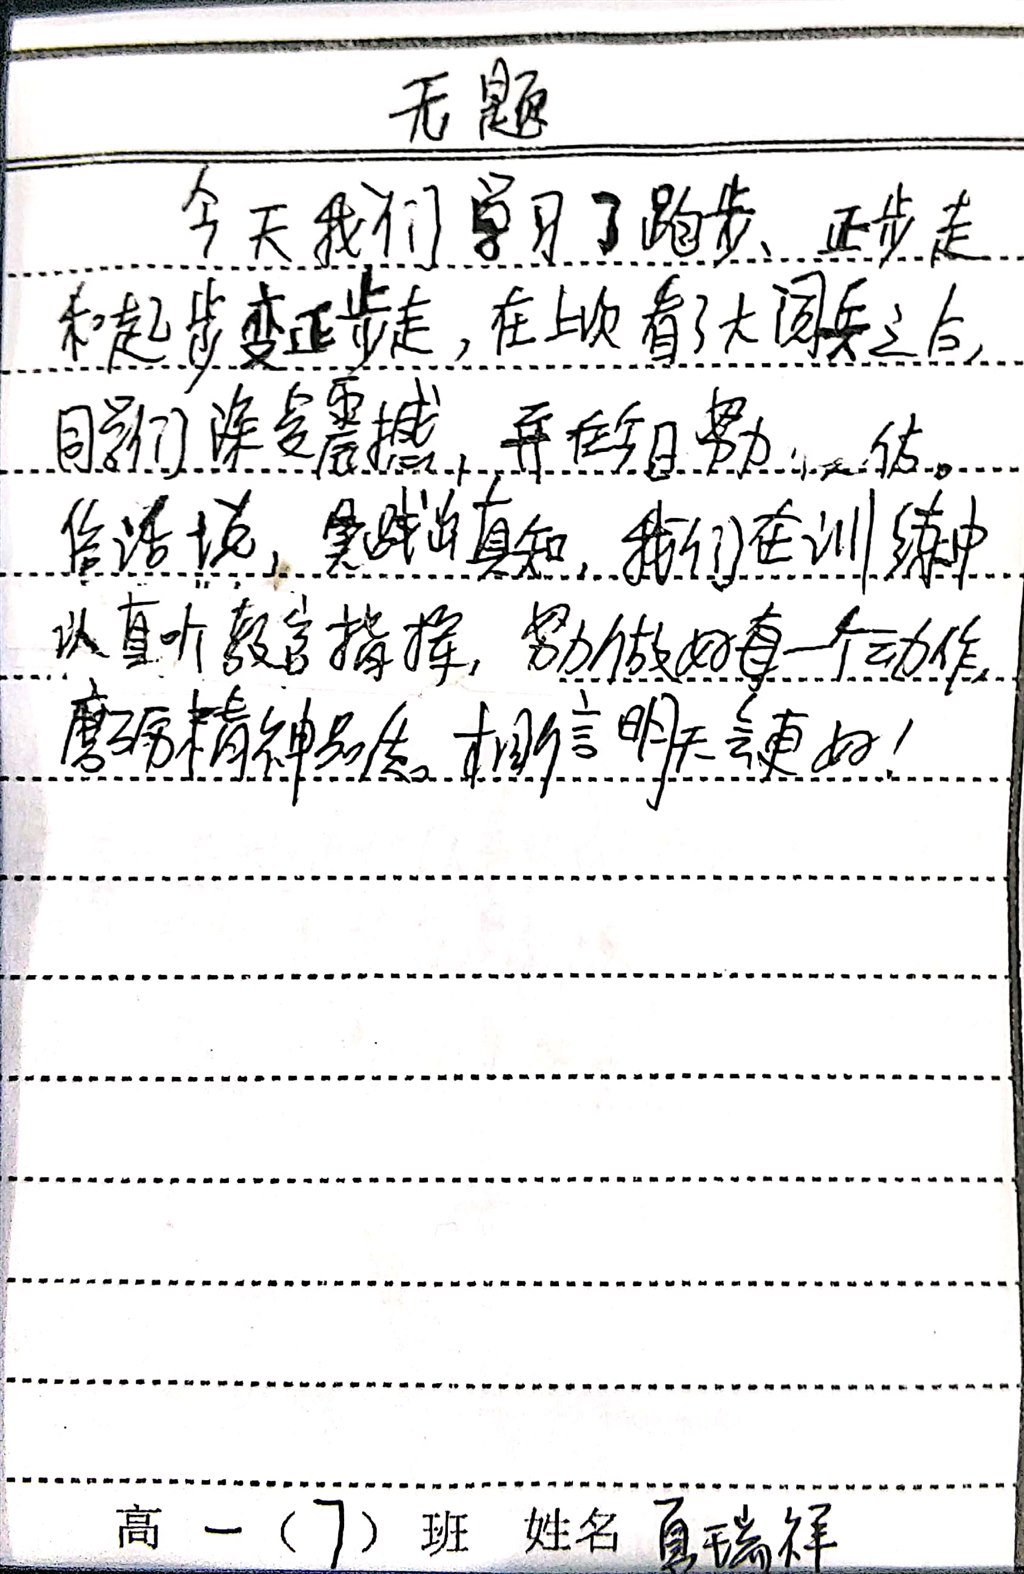 无题
今天我们学习了跑步、正步走
和起步变正步走，在上次看了大阅兵之后，
同学们深受震撼，并在今日努力
俗话说，实践出真知，我们在训练中
认真听教官指挥，努力做好每一个动作，
磨砺精神品质。相信明天会更好！
高一（7）班 姓名 夏瑞祥